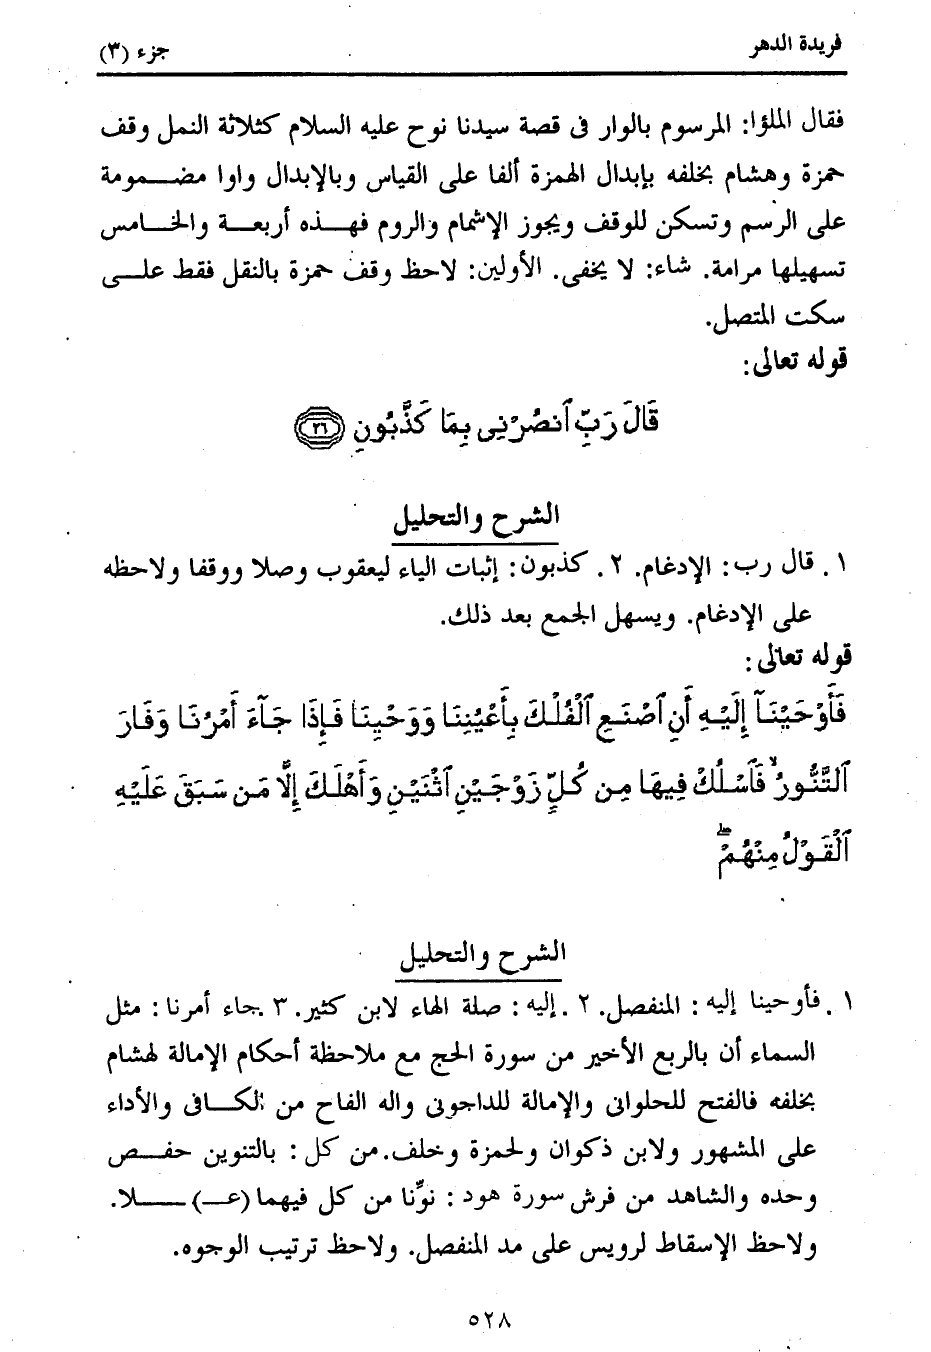 فريدة الدهر
جزء (٣)
فقال الملؤا: المرسوم بالوار فى قصة سيدنا نوح عليه السلام كثلاثة النمل وقف
حمزة وهشام بخلفه بإبدال الهمزة ألفا على القياس وبالإبدال واوا مضمومة
على الرسم وتسكن للوقف ويجوز الإشمام والروم فهذه أربعة والخامس
تسهيلها مرامة. شاء: لا يخفى. الأولين: لاحظ وقف حمزة بالنقل فقط على
سكت المتصل.
قوله تعالى:
قَالَ رَبِّ ٱنصُرْنِى بِمَا كَذَّبُونِ ٢٦
الشرح والتحليل
١. قال رب: الإدغام. ٢. كذبون: إثبات الياء ليعقوب وصلا ووقفا ولاحظه
على الإدغام. ويسهل الجمع بعد ذلك.
قوله تعالى:
فَأَوْحَيْنَآ إِلَيْهِ أَنِ ٱصْنَعِ ٱلْفُلْكَ بِأَعْيُنِنَا وَوَحْيِنَا فَإِذَا جَآءَ أَمْرُنَا وَفَارَ
ٱلتَّنُّورُ ۙ فَٱسْلُكْ فِيهَا مِن كُلٍّ زَوْجَيْنِ ٱثْنَيْنِ وَأَهْلَكَ إِلَّا مَن سَبَقَ عَلَيْهِ
ٱلْقَوْلُ مِنْهُمْ ۖ
الشرح والتحليل
١. فأوحينا إليه: المنفصل. ٢. إليه: صلة الهاء لابن كثير. ٣. جاء أمرنا: مثل
السماء أن بالربع الأخير من سورة الحج مع ملاحظة أحكام الإمالة لهشام
بخلفه فالفتح للحلوانى والإمالة للداجونى واله الفاح من الكافى والأداء
على المشهور ولابن ذكوان ولحمزة وخلف. من كل: بالتنوين حفص
وحده والشاهد من فرش سورة هود: نوِّنا من كل فيهما (عـ) ـلا.
ولاحظ الإسقاط لرويس على مد المنفصل. ولاحظ ترتيب الوجوه.
٥٢٨